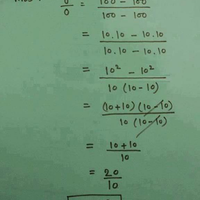 0/0 = 100 - 100 / 100 - 100
= 10.10 - 10.10 / 10.10 - 10.10
= 10² - 10² / 10 (10-10)
= (10+10) (10-10) / 10 (10-10)
= 10+10 / 10
= 20 / 10